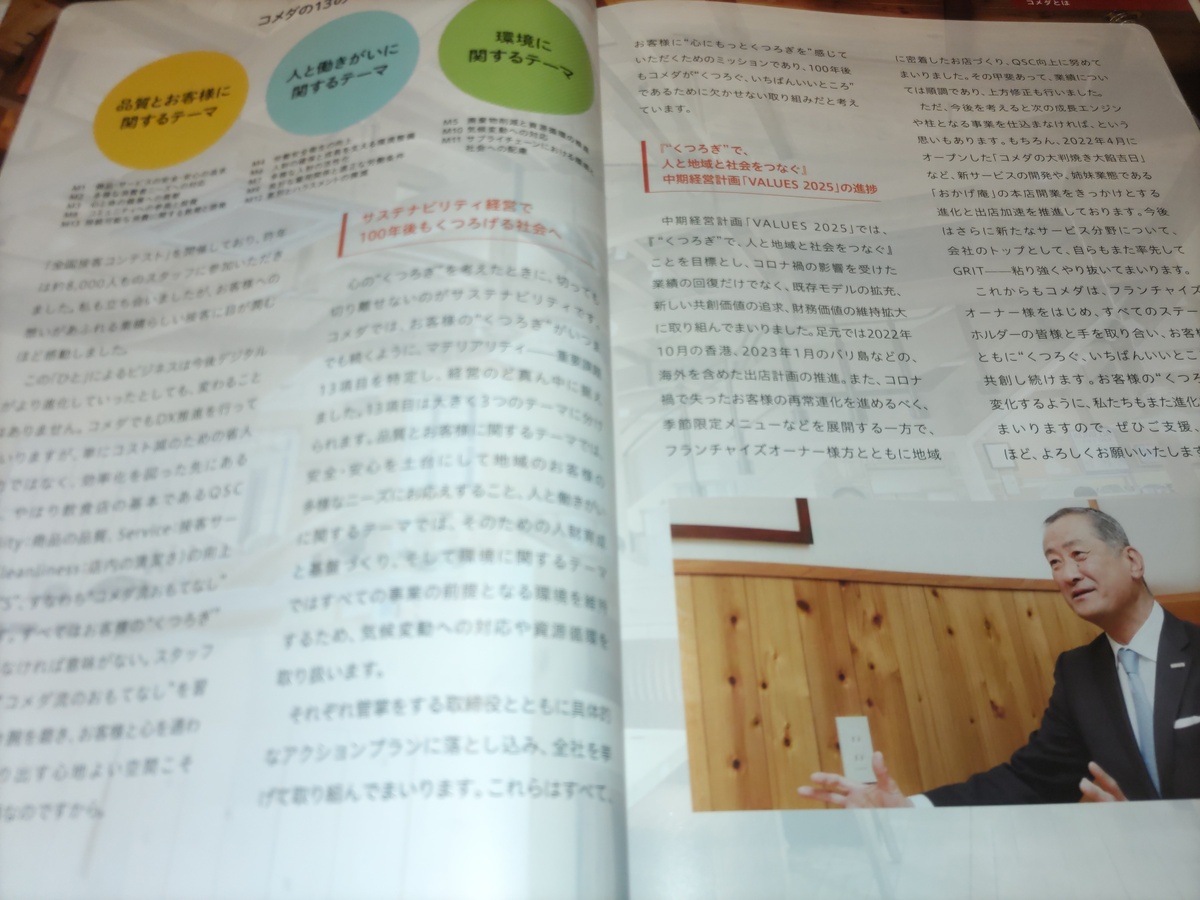 コメダとは
コメダの13の
品質とお客様に
関するテーマ
人と働きがいに
関するテーマ
環境に
関するテーマ
M10 気候変動への対応
社会への配慮
「全国接客コンテスト」を開催しており、昨年
は約8,000人ものスタッフに参加いただき
ました。私も立ち会いましたが、お客様への
想いがあふれる素晴らしい接客に目が潤む
ほど感動しました。
この「ひと」によるビジネスは今後デジタル
がより進化していったとしても、変わること
はありません。コメダでもDX推進を行って
いりますが、単にコスト減のための省人
ではなく、効率化を図った先にある
、やはり飲食店の基本であるQSC
lity:商品の品質、Service:接客サー
leanliness:店内の清潔さ)の向上
S"、すなわち"コメダ流おもてなし"
す。すべてはお客様の"くつろぎ"
なければ意味がない。スタッフ
"コメダ流のおもてなし"を習
腕を磨き、お客様と心を通わ
り出す心地よい空間こそ
なのですから。
サステナビリティ経営で
100年後もくつろげる社会へ
心の"くつろぎ"を考えたときに、切っても
切り離せないのがサステナビリティです。
コメダでは、お客様の"くつろぎ"がいつま
でも続くように、マテリアリティ――重要課題
13項目を特定し、経営のど真ん中に据え
ました。13項目は大きく3つのテーマに分け
られます。品質とお客様に関するテーマでは、
安全・安心を土台にして地域のお客様の
多様なニーズにお応えすること、人と働きがい
に関するテーマでは、そのための人財育成
と基盤づくり、そして環境に関するテーマ
ではすべての事業の前提となる環境を維持
するため、気候変動への対応や資源循環を
取り扱います。
それぞれ管掌をする取締役とともに具体的
なアクションプランに落とし込み、全社を挙
げて取り組んでまいります。これらはすべて、
お客様に"心にもっとくつろぎを"感じて
いただくためのミッションであり、100年後
もコメダが"くつろぐ、いちばんいいところ"
であるために欠かせない取り組みだと考え
ています。
『"くつろぎ"で、
人と地域と社会をつなぐ』
中期経営計画「VALUES 2025」の進捗
中期経営計画「VALUES 2025」では、
『"くつろぎ"で、人と地域と社会をつなぐ』
ことを目標とし、コロナ禍の影響を受けた
業績の回復だけでなく、既存モデルの拡充、
新しい共創価値の追求、財務価値の維持拡大
に取り組んでまいりました。足元では2022年
10月の香港、2023年1月のバリ島などの、
海外を含めた出店計画の推進。また、コロナ
禍で失ったお客様の再常連化を進めるべく、
季節限定メニューなどを展開する一方で、
フランチャイズオーナー様方とともに地域
に密着したお店づくり、QSC向上に努めて
まいりました。その甲斐あって、業績につい
ては順調であり、上方修正も行いました。
ただ、今後を考えると次の成長エンジン
や柱となる事業を仕込まなければ、という
思いもあります。もちろん、2022年4月に
オープンした「コメダの大判焼き大餡吉日」
など、新サービスの開発や、姉妹業態である
「おかげ庵」の本店開業をきっかけとする
進化と出店加速を推進しております。今後
はさらに新たなサービス分野について、
会社のトップとして、自らもまた率先して
GRIT――粘り強くやり抜いてまいります。
これからもコメダは、フランチャイズ
オーナー様をはじめ、すべてのステー
ホルダーの皆様と手を取り合い、お客
ともに"くつろぐ、いちばんいいとこ
共創し続けます。お客様の"くつろ
変化するように、私たちもまた進化
まいりますので、ぜひご支援、
ほど、よろしくお願いいたします